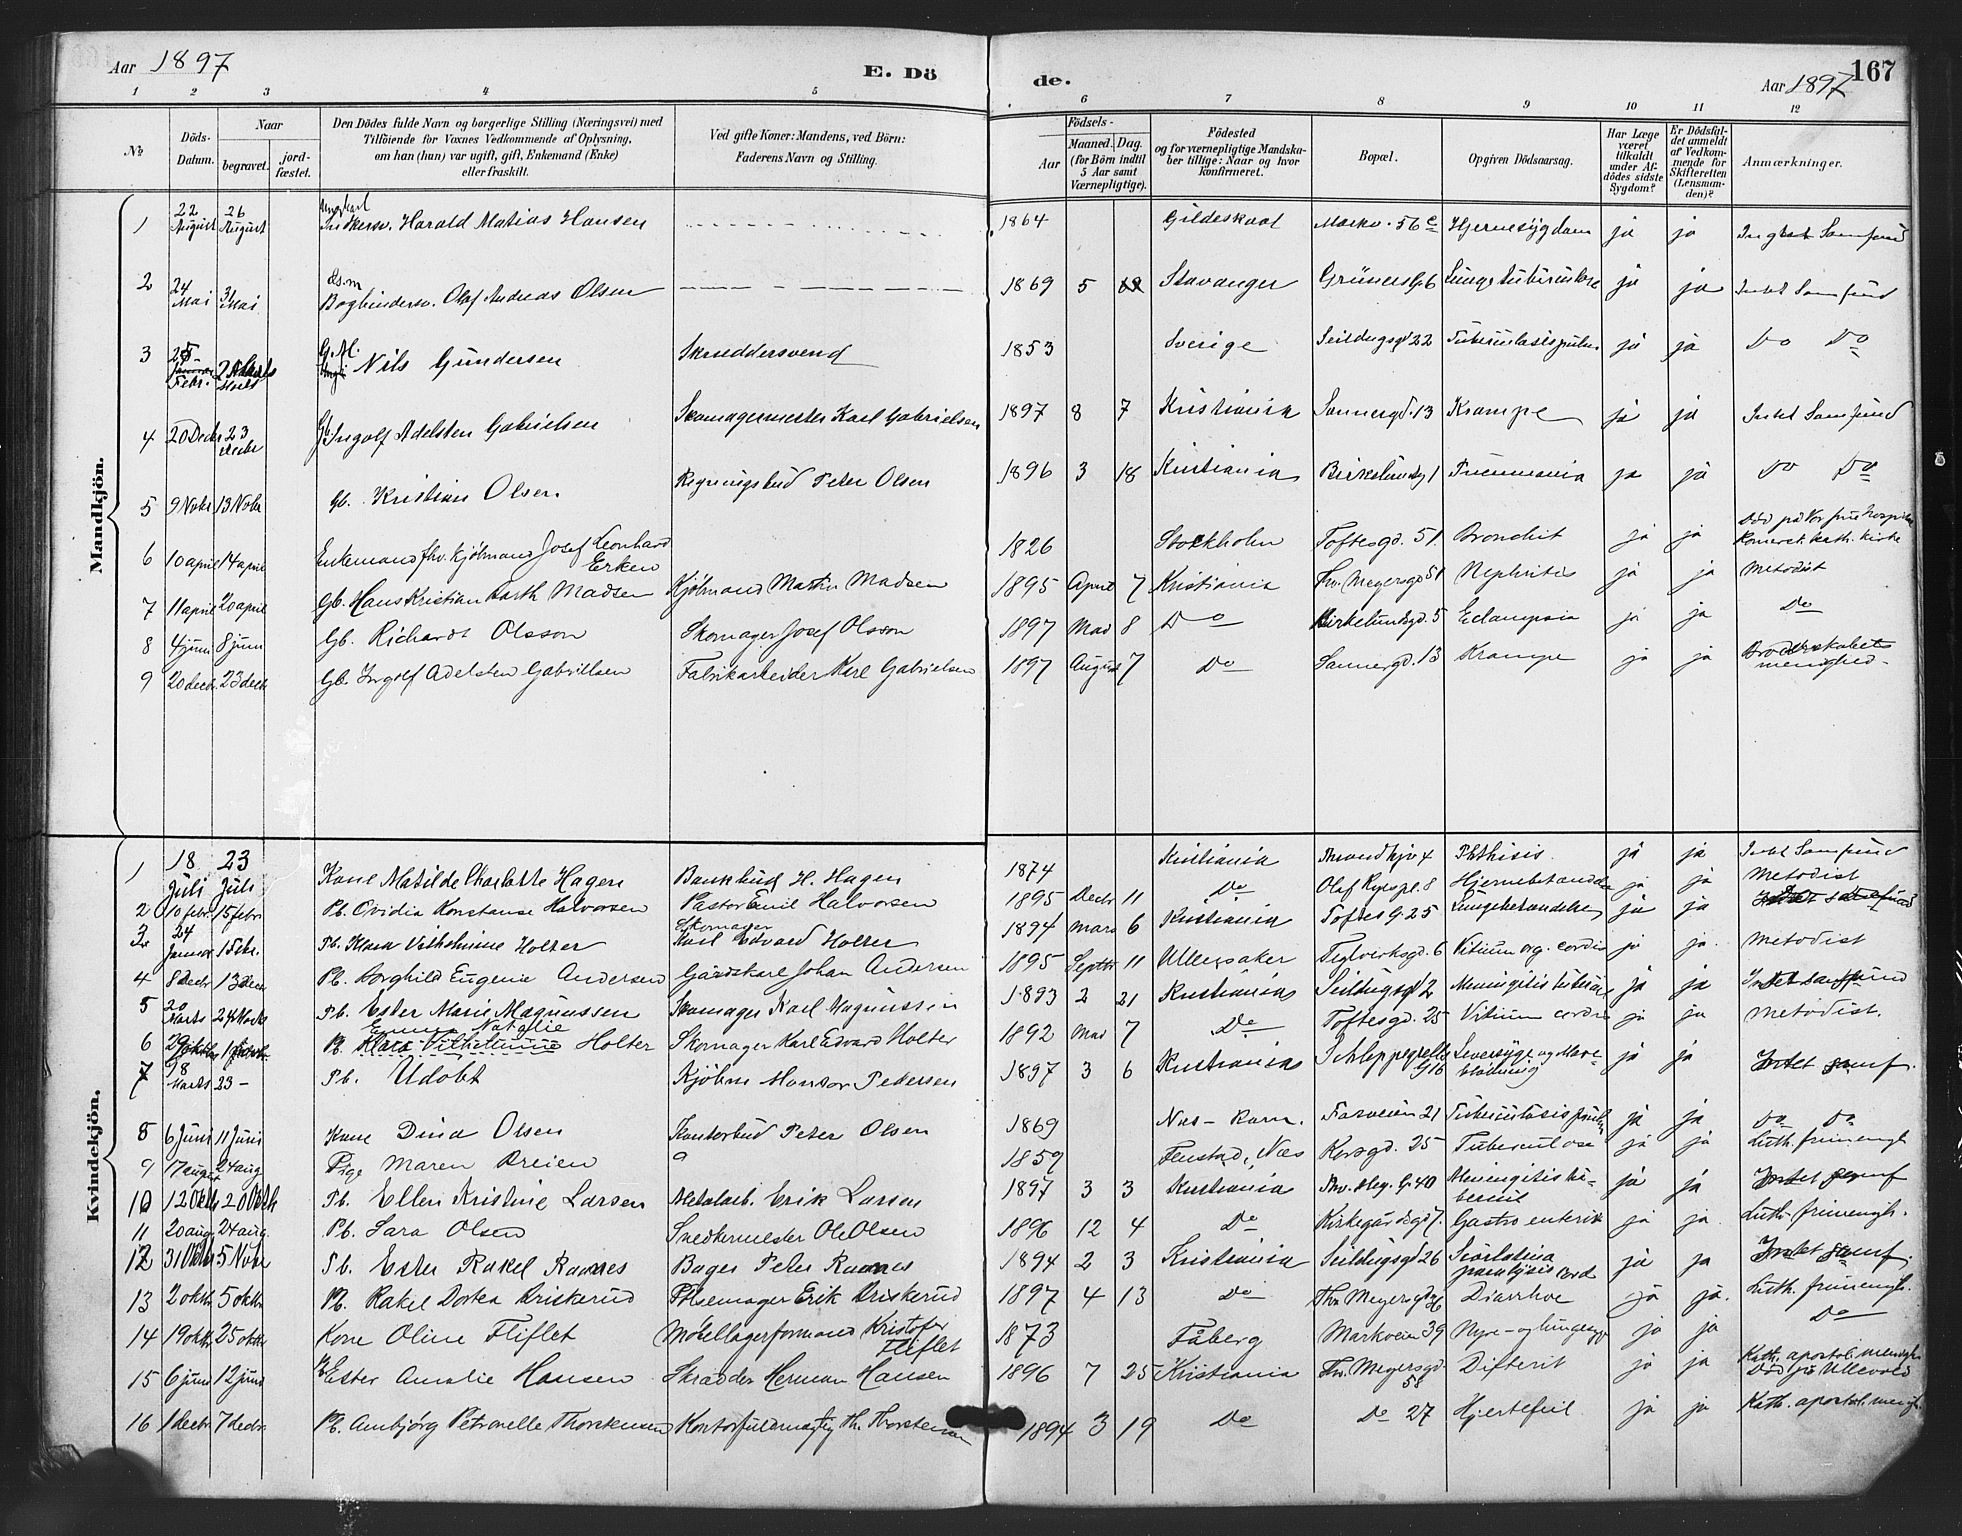 Aar 1897 E. Döde. Aar 1897 167
1 2 3 4 5 6 7 8 9 10 11 12
No
Döds-Datum.
Naar
begravet.
jord-fæstet.
Den Dödes fulde Navn og borgerlige Stilling (Næringsvei) med
Tilföiende for Voxnes Vedkommende af Oplysning,
om han (hun) var ugift, gift, Enkemand (Enke)
eller fraskilt.
Ved gifte Koner: Mandens, ved Börn:
Faderens Navn og Stilling.
Födsels-
Aar
Maaned. Dag.
(for Börn indtil
5 Aar samt
Værnepligtige).
Födested
og for værnepligtige Mandska-
ber tillige: Naar og hvor
konfirmeret.
Bopæl.
Opgiven Dödsaarsag.
Har Læge
været
tilkaldt
under Af-
dödes sidste
Sygdom?
Er Dödsfal-
det anmeldt
af Vedkom-
mende for
Skifteretten
(Lensman-
den)?
Anmærkninger.
Mandkjön.
1 22 August 26 August Ungkarl Harald Matias Hansen 1864 Gildeskaal Markv. 56 c Hjernesygdom ja ja Samfund
2 24 Mai 31 Mai Bogbindersv. Olaf Andreas Olsen 1869 5 Stavanger Grüners G 6 Lungetuberculose ja ja Intet Samfund
3 Febr. G. M. Nils Gundersen Skræddersvend 1853 Sverige Seildugsgd 22 Tuberculosis pulm. ja ja Do Do
4 20 Decbr 23 Decbr Gb. Ingolf Adelsten Gabrielsen Skomagermester Karl Gabrielsen 1897 8 7 Kristiania Sannergd. 13 Krampe ja ja Intet Samfund
5 9 Novbr 13 Novbr Gb. Kristian Olsen. Regningsbud Peter Olsen 1896 3 18 Kristiania 1 Pneumonia ja ja Do Do
6 10 april 14 april Enkemand fhv. kjølmand Josef Leonhard Erken 1826 Stockholm Toftesgd. 51. Bronchit ja ja Død på Vor frue hospital Romersk kath. kirke
7 11 april 20 april Gb. Hans Kristian Barth Madsen Kjølmand Martin Madsen 1895 April 7 Kristiania Thv. Meyersgd 51 Nephritis ja ja Metodist
8 4 juni 8 juni Gb. Richardt Olsson Skomager Josef Olsson 1897 Mai 8 Do Birkelundsgd. 5 Eclampsia ja ja Do
9 20 decbr. 23 decb Gb. Ingolf Adelsten Gabrillsen Fabrikarbeider Karl Gabrielsen 1897 August 7 Do Sannergd. 13 Krampe ja ja Broderskabets menighed.
Kvindekjön.
1 18 Juli 23 Juli Kone Matilde Charlotte Hagen Bankbud H. Hagen 1874 Kristiania 4 Phthisis. ja ja Intet Samfund
2 10 febr. 15 febr. Pb. Ovidia Konstanse Halvorsen Pastor Emil Halvorsen 1895 Decbr 11 Do Olaf Ryespl. 8 Hjernebetændelse ja ja Metodist
3 24 Januar 1 Febr. Pb. Klara Vilhelmine Holter Skomager Karl Edvard Holter 1894 Mars 6 Kristiania Toftes G. 25 Lungebetændelse ja ja
4 8 decbr 13 decb Pb. Borghild Eugenie Andersen Gårdskarl Johan Andersen 1895 Septbr 11 Ullensaker Teglverksgd. 6 Vitium org. cordis ja ja. Metodist
5 20 Marts 24 Marts Pb. Ester Marie Magnussen Skomager Karl Magnussen 1893 2 21 Kristiania Seildugsgd 2 Meningitis ja ja Intet samfund
6 Pb. Emma Natalie Klara Vilhelmine Holter Skomager Karl Edvard Holter 1892 Mai 7 Do Toftesgd. 25 Vitium cordis ja ja Metodist.
7 18 Marts 23 – Pb. Udøbt Kjøbm Pedersen 1897 3 6 Kristiania Schleppegrells G 16 Leversyge og ja ja Intet samf.
8 6 Juni 11 Juni Kone Dina Olsen Kontorbud Peter Olsen 1869 Nes – Rom. 21 Tuberculosis pulm ja ja Do Do
9 17 aug. 24 aug Pige Maren Dreien 1859 Fenstad, Næs Korsgd. 25 Tuberculose ja ja Luth. frimengh.
10 12 Oktb 20 Oktb Pb. Ellen Kristine Larsen Metalarb. Erik Larsen 1897 3 3 Kristiania Thv. Mey. G. 40 Meningitis ja ja Intet samf
11 20 aug. 24 aug. Pb. Sara Olsen Snedkermester Ole Olsen 1896 12 4 Do Kirkegårdsgd 7. Gastro enterit ja ja. Luth. frimengh.
12 31 Oktbr 5 Novbr Pb. Ester Rakel Ramnes Bager Peter Ramnes 1894 2 3 Kristiania Seildugsgd 26 Scarlatina paralysis cord ja ja Intet samf.
13 2 oktb 5 oktb Pb. Rakel Dortea Driskerud Pølsemager Erik Driskerud 1897 4 13 Do Thv. Meyersgd Diarrhoe ja ja. Luth. frimengh.
14 19 oktb 25 oktb Kone Oline Fliflet Møbellagerformand Kristofer Fliflet 1873 Fåberg Markveien 39 Nyre- og lungesyge ja ja Do
15 6 juni 12 juni Ester Amalie Hansen Skrædder Herman Hansen 1896 7 25 Kristiania Thv. Meyersgd. 58 Difterit ja ja Kath. apostol. mengh. Død på Ullevold
16 1 decbr 7 decbr. Pb. Ambjørg Petronelle Thorstensen Kontorfuldmægtig Th. Thorstensen 1894 3 19 Do Do 27 Hjertefeil ja ja Kath. apostol. mengh.